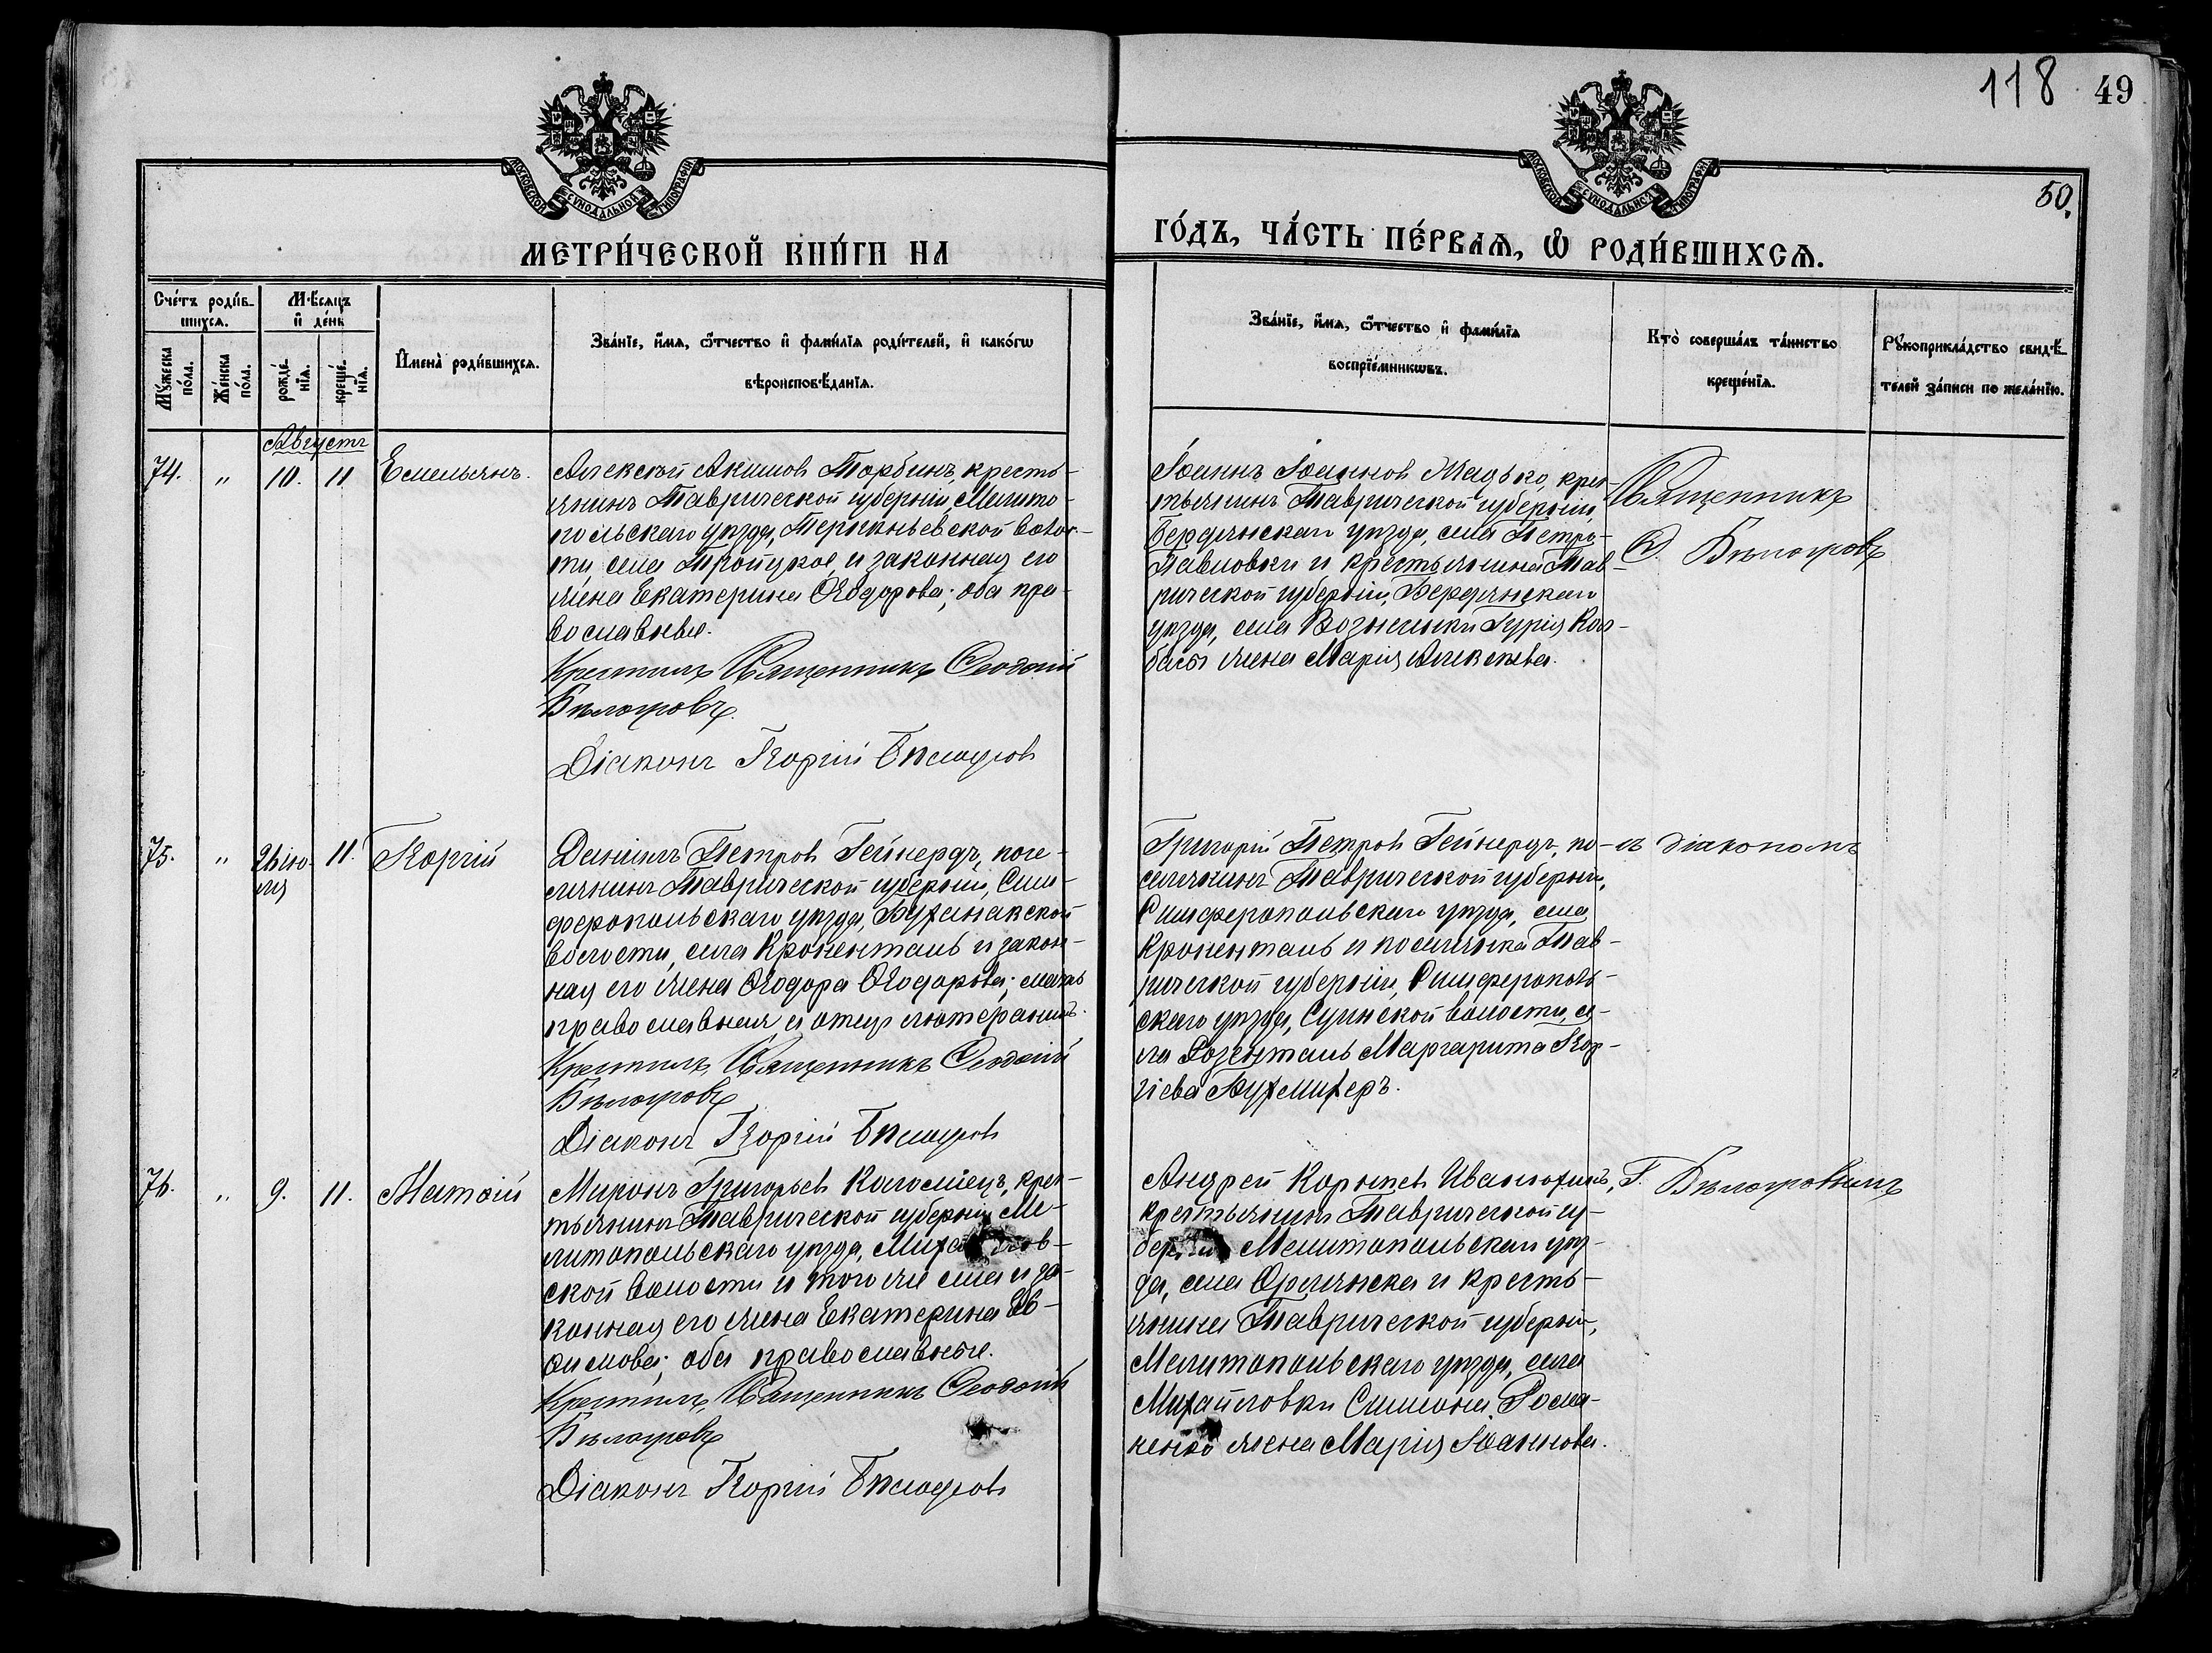 118 49
50.
МОСКОВСКОЙ СѴНОДАЛЬНОЙ ТИПОГРАФІИ
МОСКОВСКОЙ СѴНОДАЛЬНОЙ ТИПОГРАФІИ
МЕТРИ́ЧЕСКОЙ КНИ́ГИ НА
ГО́ДЪ, ЧА́СТЬ ПЕ́РВАѦ, Ѽ РОДИ́ВШИХСѦ.
Сче́тъ роди́в-
шихсѧ.
Мꙋ́жеска
по́ла.
Же́нска
по́ла.
Мѣ́сѧцъ
и҆ де́нь
рожде́-
нїѧ.
креще́-
нїѧ.
И҆мена̀ роди́вшихсѧ.
Зва́нїе, и҆́мѧ, ѻ҆́тчество и҆ фами́лїѧ роди́телей, и҆ како́гѡ
вѣроисповѣ́данїѧ.
Зва́нїе, и҆́мѧ, ѻ҆́тчество и҆ фами́лїѧ
воспрїе́мникѡвъ.
Кто̀ соверша́лъ та́инство
креще́нїѧ.
Рꙋкоприкла́дство свидѣ́-
телей за́писи по жела́нїю.
Августъ
74. " 10. 11. Емельянъ.
Алексѣй Акимов Торбинъ, кресть-
янинъ Таврической губерніи, Мелито-
польскаго уѣзда, волос-
ти, села Тройцкое, и законная его
жена Екатерина Ѳеодорова; оба пра-
вославные.
Крестилъ Священникъ Ѳеодосій
Бѣлогровъ.
Діаконъ Георгій Бѣлогров
Іоаннъ Іоаннов Жадько, крес-
тьянинъ Таврической губерніи,
Бердянскаго уѣзда, села Петро-
Павловки и крестьянина Тав-
рической губерніи, Бердянскаго
уѣзда, села Гурія Кол-
басы жена Марія Алексѣева.
Священникъ
Ѳ. Бѣлогровъ
75. " 26 ію-
ля 11. Георгій
Даніилъ Петров Гейнердъ, посе-
лянинъ Таврической губерніи, Сим-
феропольскаго уѣзда,
волости, села Кроненталь и закон-
ная его жена Ѳеодора Ѳеодорова; мать
православная, а отец лютеранинъ.
Крестилъ Священникъ Ѳеодосій
Бѣлогровъ
Діаконъ Георгій Бѣлогров
Григорій Петров Гейнердъ, по-
селянинъ Таврической губерніи,
Симферопольскаго уѣзда, села
Кроненталь и поселянка Тав-
рической губерніи, Симферополь-
скаго уѣзда, волости, се-
ла Розенталь Маргарита Геор-
гіева Бухмилеръ.
съ діакономъ
76. " 9. 11. Матѳій
Миронъ Григорьев Коломіецъ, крес-
тьянинъ Таврической губерніи, Ме-
литопольскаго уѣзда, Михайлов-
ской волости и того же села и за-
конная его жена Екатерина Ев-
ѳимова; оба православные.
Крестилъ Священникъ Ѳеодосій
Бѣлогровъ
Діаконъ Георгій Бѣлогров
Андрей Корнѣев
крестьянинъ Таврической гу-
берніи, Мелитопольскаго уѣз-
да, села Орлянска и кресть-
янина Таврической губерніи,
Мелитопольскаго уѣзда, села
Михайловки Симеона Рома-
ненко жена Марія Іоаннова.
Г. Бѣлогровымъ